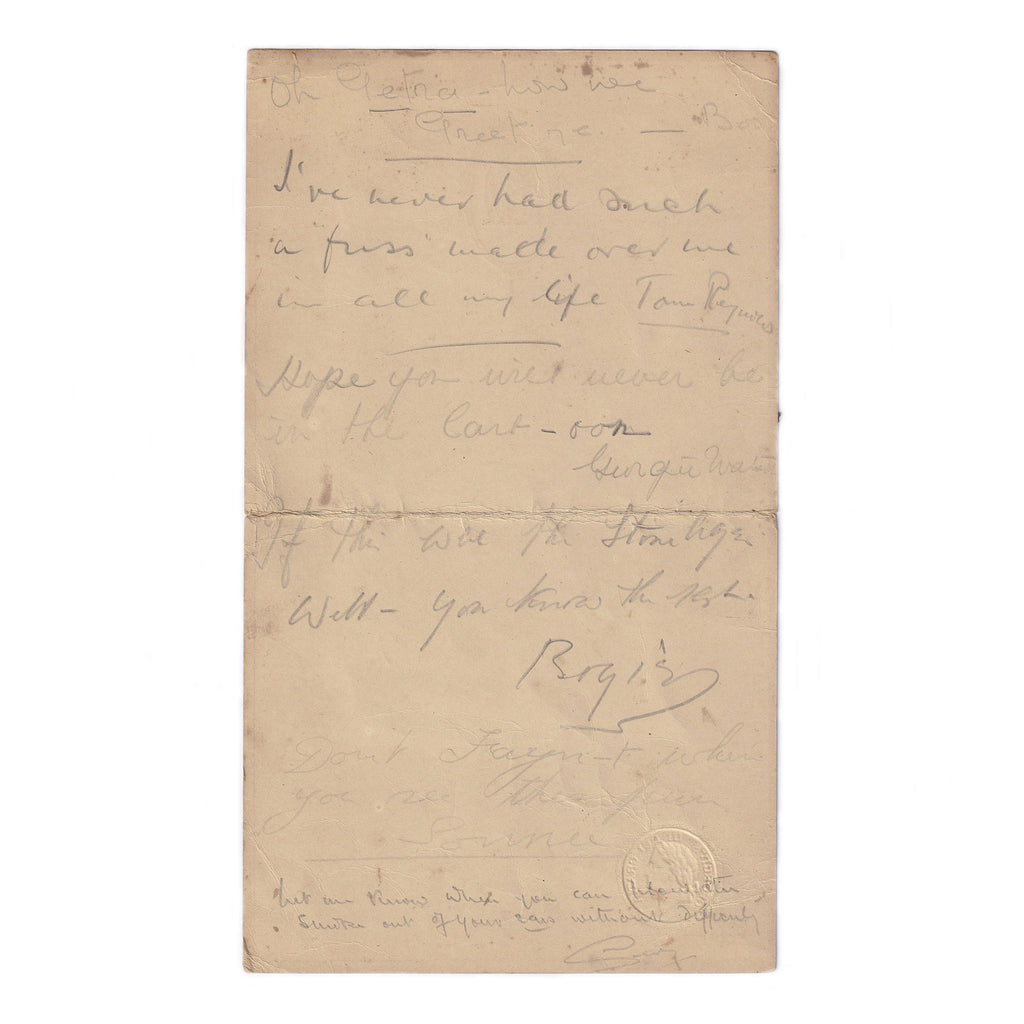 Oh Getra - how we
Greet ye. — Bos
I've never had such
a fuss made over me
in all my life Tom Reynolds
Hope you will never be
in the Cart - oon
Georgie
If this was the Stone Age
Well - you know the
Bogie
Dont Fayn-t when
you see this
Let me know when you can
Smoke out of your ears without difficulty